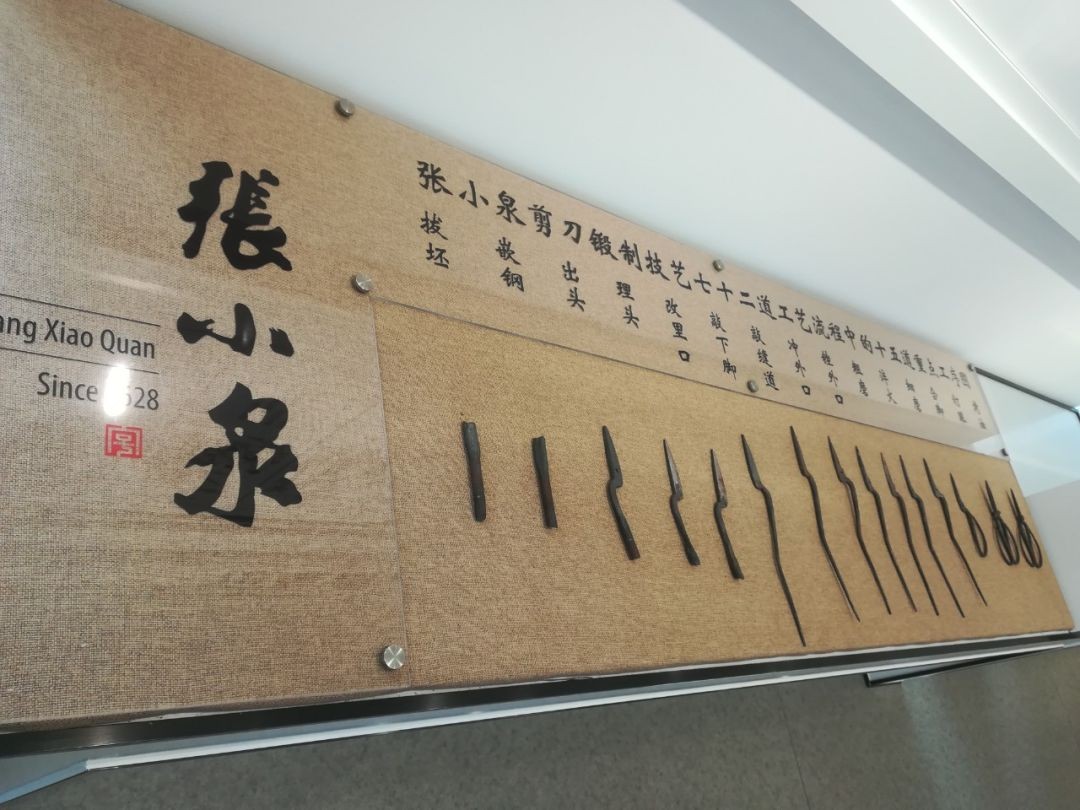 張小泉
ang Xiao Quan
Since 1628
张小泉剪刀锻制技艺七十二道工艺流程中的十五道重点工序图
拔坯
嵌钢
出头
理头
改里口
敲下脚
敲缝道
冲外口
锉外口
粗磨
淬火
细磨
合脚